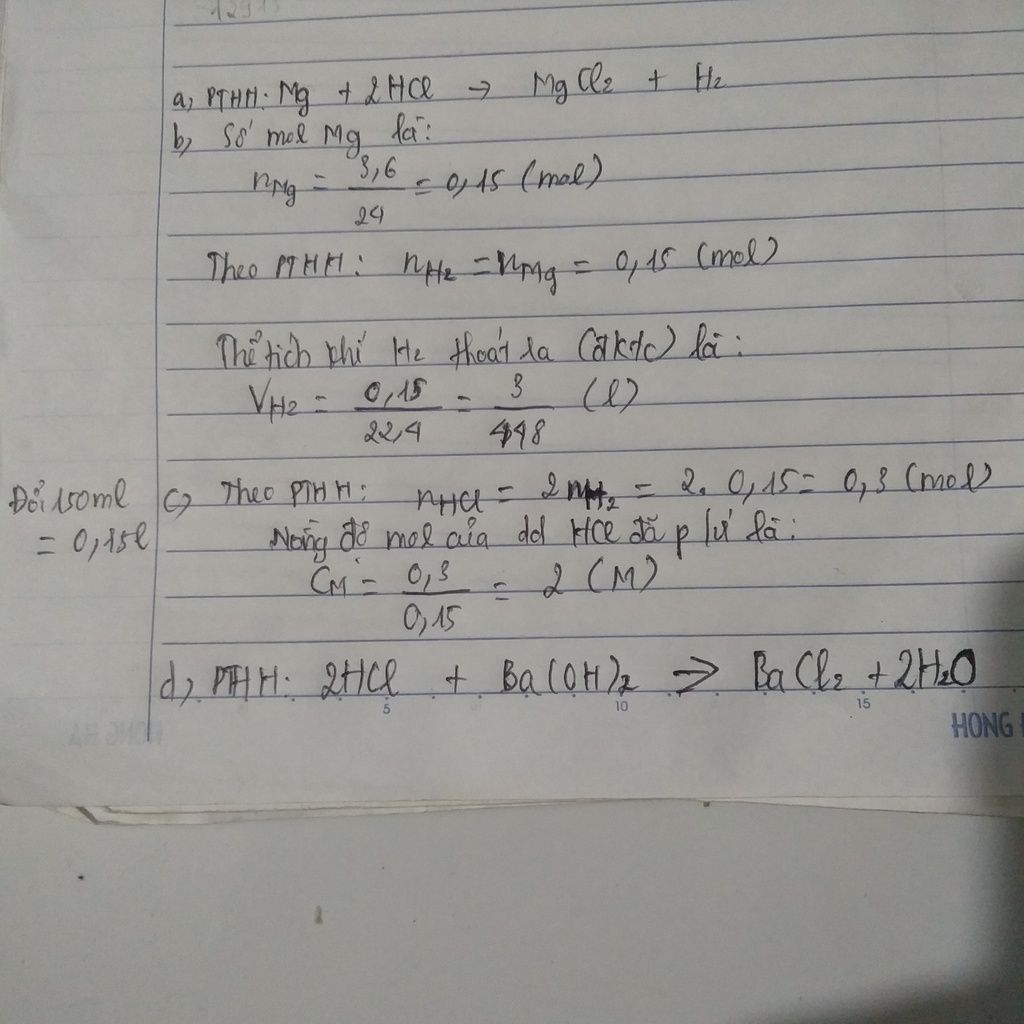 a, PTHH: Mg + 2HCl → MgCl₂ + H₂
b, Số mol Mg là:
nMg = 3,6/24 = 0,15 (mol)
Theo PTHH: nH₂ = nMg = 0,15 (mol)
Thể tích khí H₂ thoát ra (đktc) là:
VH₂ = 0,15/22,4 = 3/448 (l)
Đổi 150ml
= 0,15l
c, Theo PTHH: nHCl = 2nH₂ = 2. 0,15 = 0,3 (mol)
Nồng độ mol của dd HCl đã p/ứ là:
CM = 0,3/0,15 = 2 (M)
d, PTHH: 2HCl + Ba(OH)₂ → BaCl₂ + 2H₂O
5 10 15
HONG